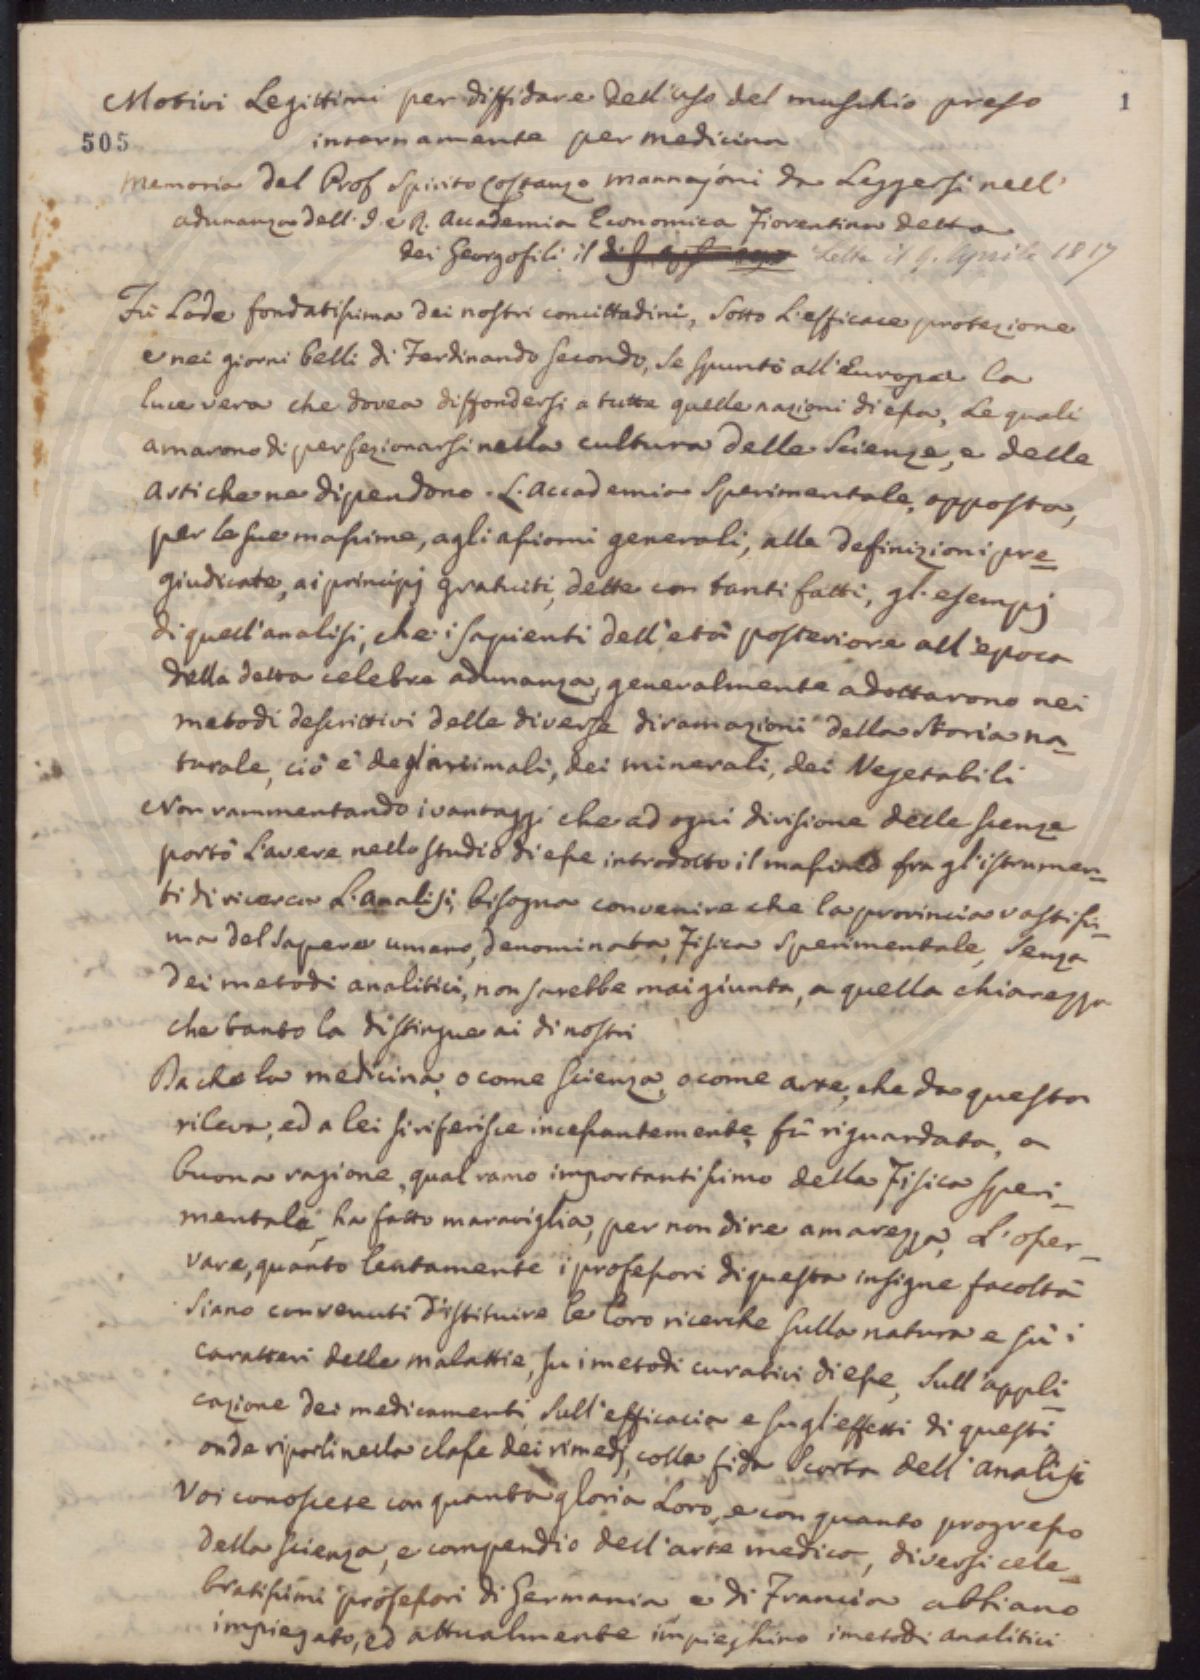 Motivi Legittimi per diffidare dell'uso del muschio preso
1
505
internamente per medicina
Memoria del Prof Spirito Costanzo Mannajoni da Leggersi nell'
adunanza dell'I. e R. Accademia Economica Fiorentina detta
dei Georgofili il Letta il 9. Aprile 1817
Fù Lode fondatissima dei nostri concittadini, sotto L'efficace protezione
e nei giorni belli di Ferdinando secondo, se spuntò all'Europa la
luce vera che dovea diffondersi a tutte quelle nazioni di essa, Le quali
amarono di perfezionarsi nella cultura delle Scienze, e delle
Arti che ne dipendono. L'Accademia Sperimentale, opposta,
per le sue massime, agli assiomi generali, alle definizioni pre=
giudicate, ai principj gratuiti, dette con tanti fatti, gl'esempj
di quell'analisi, che i sapienti dell'età posteriore all'epoca
della detta celebre adunanza, generalmente adottarono nei
metodi descrittivi delle diverse diramazioni della Storia na=
turale, ciò è degl'animali, dei minerali, dei Vegetabili
Non rammentando i vantaggi che ad ogni divisione delle scienze
portò L'avere nello studio di esse introdotto il fra gl'istrumen=
ti di ricerca L'analisi, bisogna convenire che la provincia vastissi=
ma del Sapere umano, denominata Fisica Sperimentale, Senza
dei metodi analitici, non sarebbe mai giunta, a quella chiarezza
che tanto la distingue ai dì nostri
Da che la medicina, o come scienza, o come arte, che da questa
rileva, ed a lei si riferisce incessantemente fù riguardata, a
buona ragione, qual ramo importantissimo della Fisica speri=
mentale, ha fatto maraviglia, per non dire amarezza, L'osser=
vare, quanto lentamente i professori di questa insigne facoltà
siano convenuti d'istituire le loro ricerche sulla natura e sù i
caratteri delle malattie, su i metodi curativi di esse, sull'appli=
cazione dei medicamenti, sull'efficacia e sugl'effetti di questi
onde riporli nella classe dei rimedj, colla fida scorta dell'analisi
Voi conoscete con quanta gloria Loro, e con quanto progresso
della scienza, e compendio dell'arte medica, diversi cele=
bratissimi professori di Germania e di Francia abbiano
impiegato, ed attualmente impieghino i metodi analitici